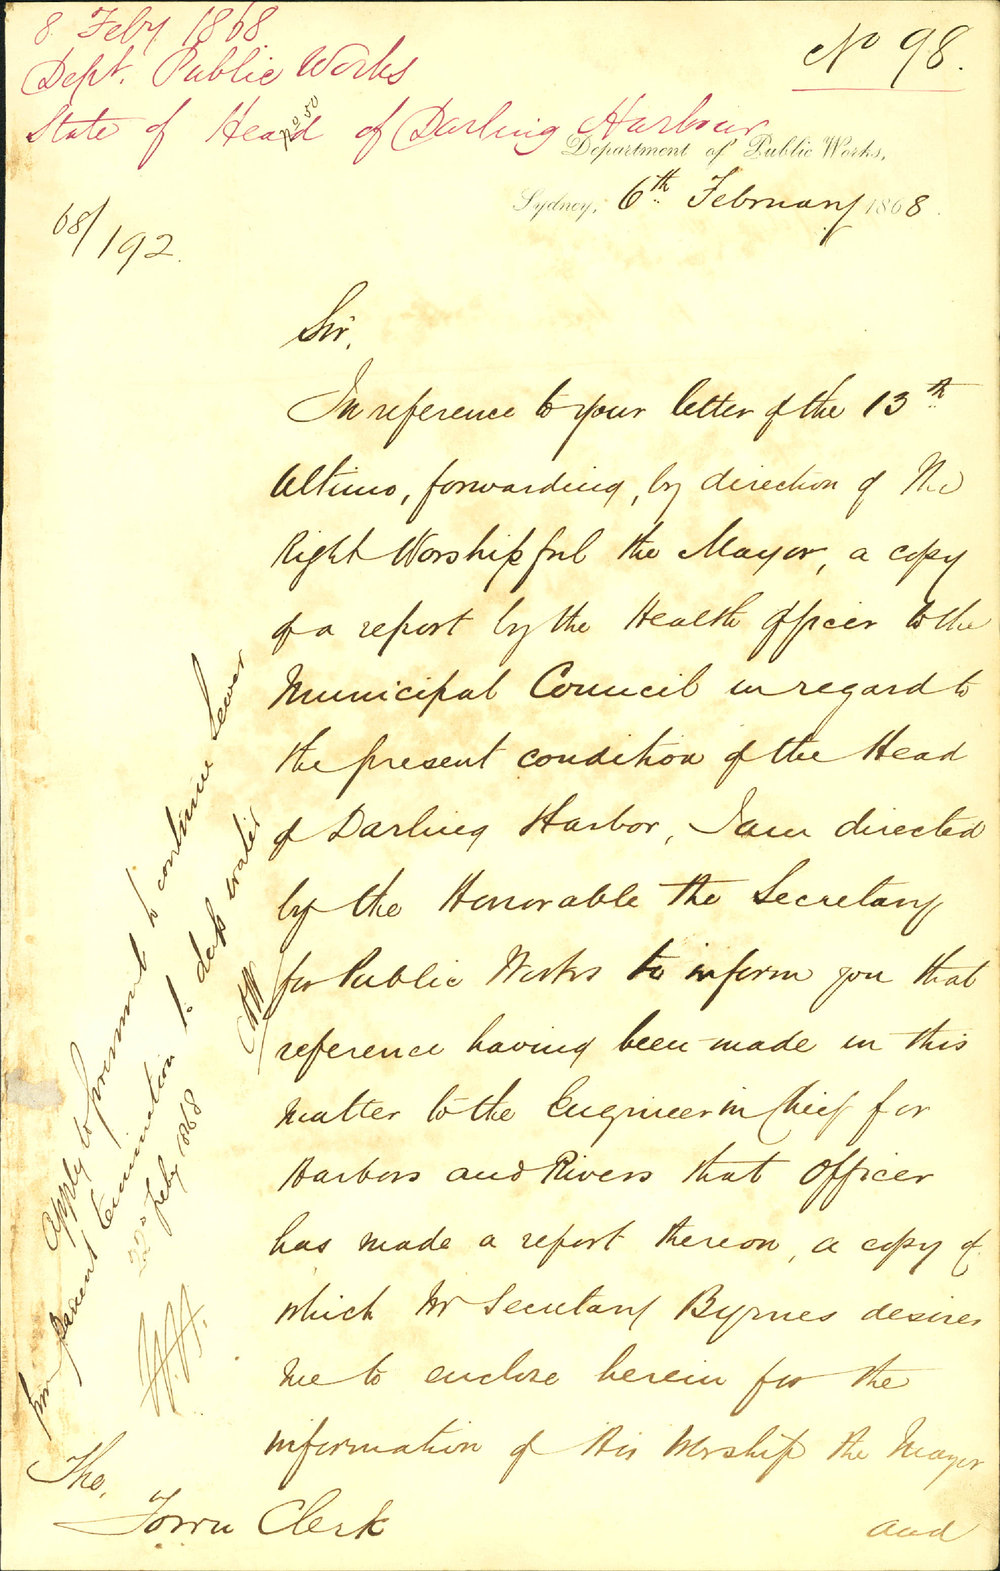 8 Feby 1868
Dept. Public Works
State of Head of Darling Harbour
No 98.
Department of Public Works,
Sydney, 6th February 1868.
68/192.
Sir,
In reference to your letter of the 13th
Ultimo, forwarding, by direction of The
Right Worshipful the Mayor, a copy
of a report by the Health Officer to the
Municipal Council in regard to
the present condition of the Head
of Darling Harbor, I am directed
by the Honorable the Secretary
for Public Works to inform you that
reference having been made in this
matter to the Engineer in Chief for
Harbors and Rivers that Officer
has made a report thereon, a copy of
which Mr Secretary Byrnes desires
me to enclose herein for the
information of His Worship the Mayor
and
The
Town Clerk
Apply to Government to continue Sewer
from present termination to deep water
22nd Feby 1868